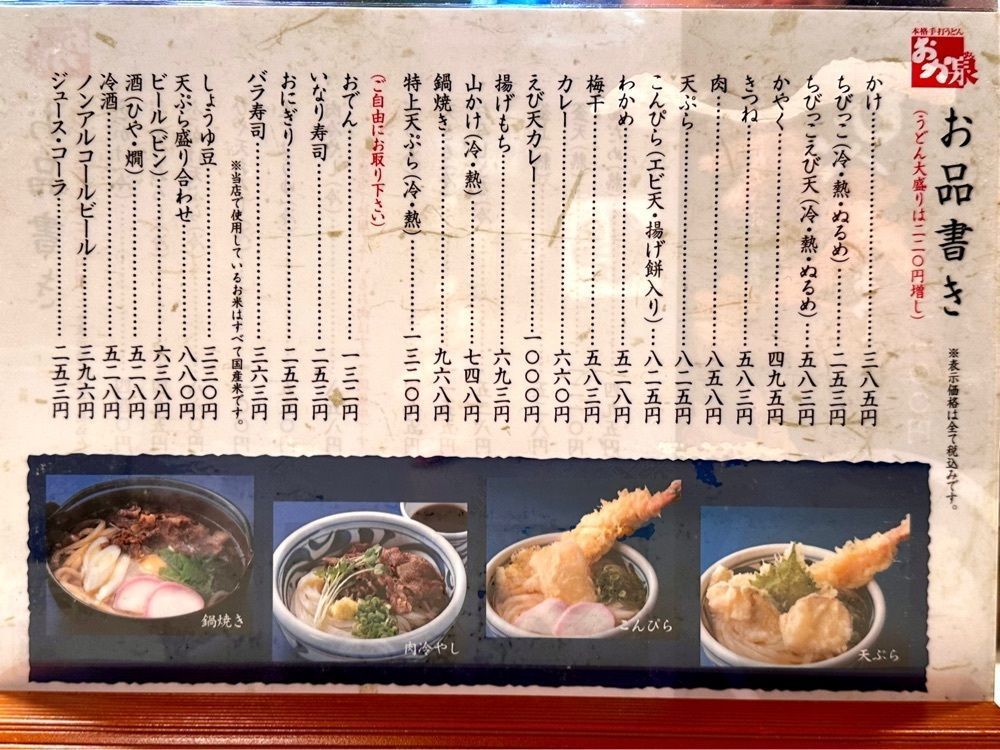 本格手打うどん
おか泉
お品書き
(うどん大盛りは二二〇円増し)
※表示価格は全て税込みです。
かけ…………三八五円
ちびっこ(冷・熱・ぬるめ)…………二五三円
ちびっこえび天(冷・熱・ぬるめ)…………五八三円
かやく…………四九五円
きつね…………五八三円
肉…………八五八円
天ぷら…………八二五円
こんぴら(エビ天・揚げ餅入り)…………八二五円
わかめ…………五二八円
梅干…………五八三円
カレー…………六六〇円
えび天カレー…………一〇〇〇円
揚げもち…………六九三円
山かけ(冷・熱)…………七四八円
鍋焼き…………九六八円
特上天ぷら(冷・熱)…………一三二〇円
(ご自由にお取り下さい)
おでん…………一三二円
いなり寿司…………二五三円
おにぎり…………二五三円
バラ寿司…………三六三円
※当店で使用しているお米はすべて国産米です。
しょうゆ豆…………三三〇円
天ぷら盛り合わせ…………八八〇円
ビール(ビン)…………六三八円
酒(ひや・燗)…………五二八円
冷酒…………五二八円
ノンアルコールビール…………三九六円
ジュース・コーラ…………二五三円
鍋焼き
肉冷やし
こんぴら
天ぷら